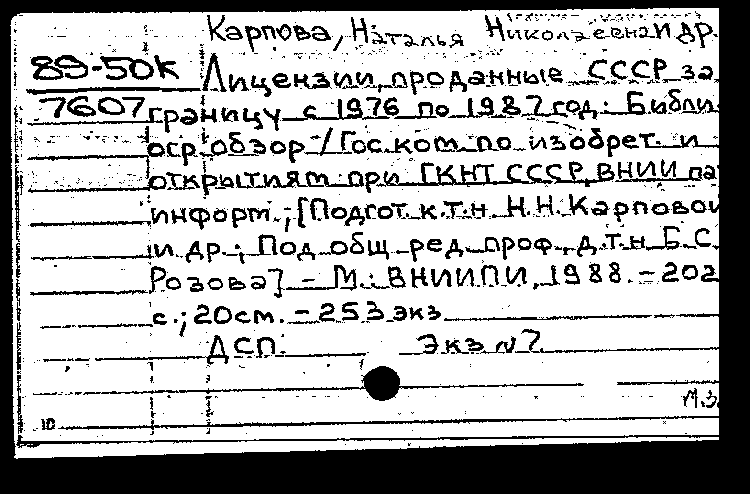 Карпова, Наталья Николаевна и др.
89-50К Лицензии, проданные СССР за
7607 границу с 1976 по 1987 год: Библи
огр. обзор / Гос. ком. по изобрет. и
открытиям при ГКНТ СССР, ВНИИ пат
информ.; [Подгот. к.т.н. Н.Н. Карповой
и др.; Под общ. ред. проф., д.т.н. Б.С.
Розова] - М.: ВНИИПИ, 1988. - 202
с.; 20см. - 253 экз
ДСП. Экз N7.
М.З.
10